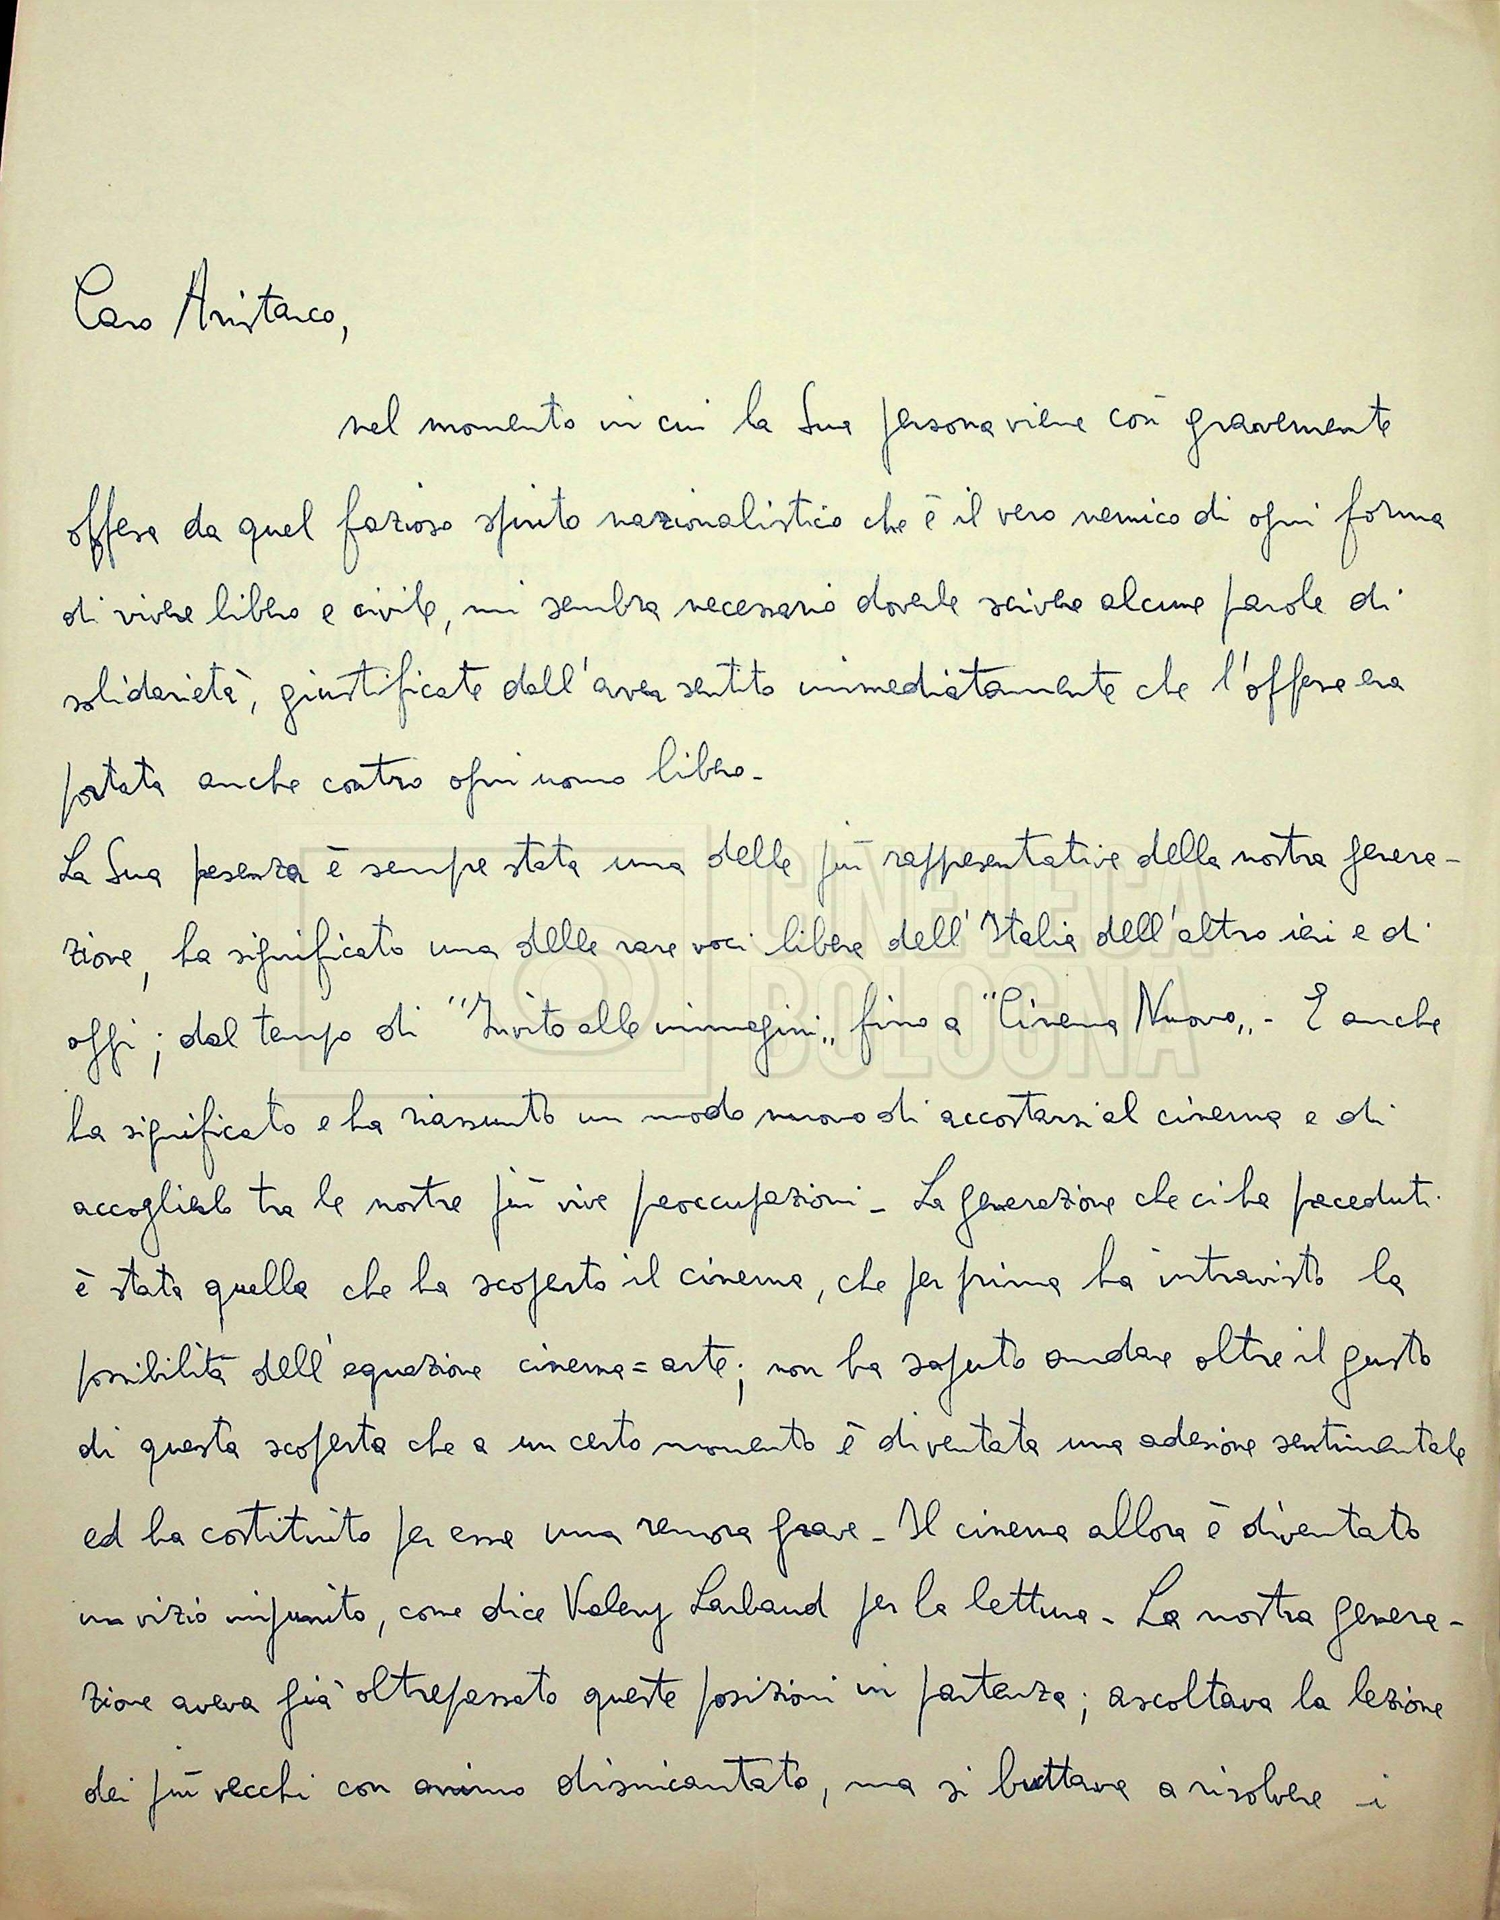 Caro Aristarco,
nel momento in cui la Sua persona viene così gravemente
offesa da quel fazioso spirito nazionalistico che è il vero nemico di ogni forma
di vivere libero e civile, mi sembra necessario doverle scrivere alcune parole di
solidarietà, giustificate dall'aver sentito immediatamente che l'offesa era
portata anche contro ogni uomo libero.-
La Sua presenza è sempre stata una delle più rappresentative della nostra genera-
zione, ha significato una delle rare voci libere dell'Italia dell'altro ieri e di
oggi; dal tempo di "Invito alle immagini„ fino a "Cinema Nuovo„.- E anche
ha significato e ha riassunto un modo nuovo di accostarsi al cinema e di
accoglierlo tra le nostre più vive preoccupazioni- La generazione che ci ha preceduti
è stata quella che ha scoperto il cinema, che per prima ha intravisto la
possibilità dell'equazione cinema=arte; non ha saputo andare oltre il gusto
di questa scoperta che a un certo momento è diventata una adesione sentimentale
ed ha costituito per essa una remora grave- Il cinema allora è diventato
un vizio impunito, come dice Valery Larbaud per la lettura- La nostra genera-
zione aveva già oltrepassato queste posizioni in partenza; ascoltava la lezione
dei più vecchi con animo disincantato, ma si buttava a risolvere i
CINETECA
BOLOGNA